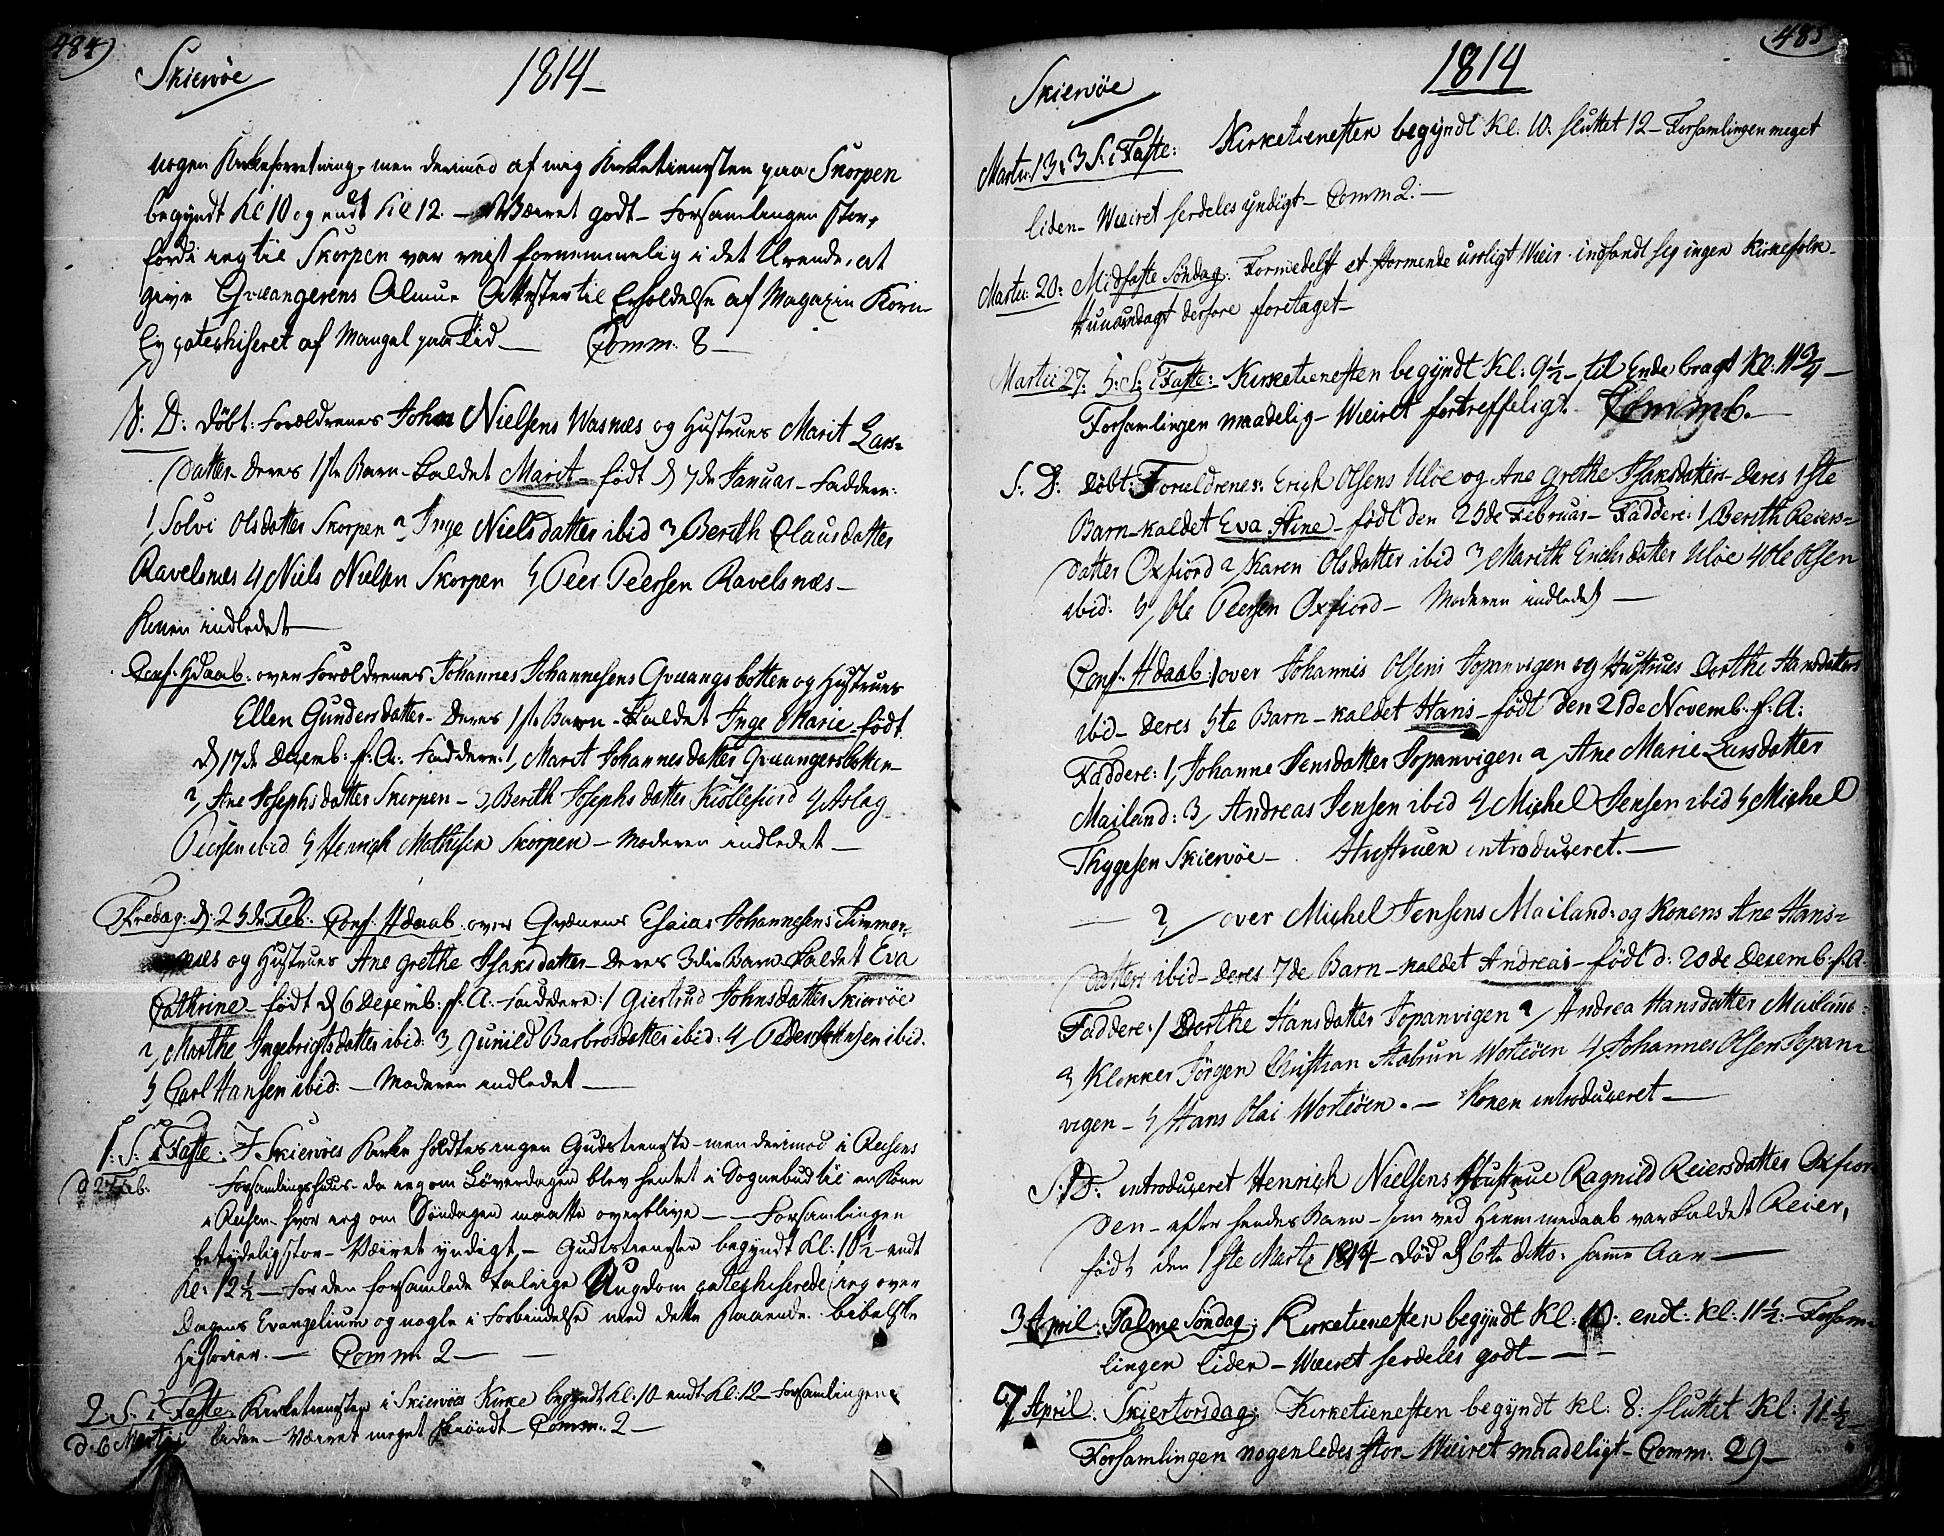 484)
Skiervöe
1814
nogen Kirkeforretning, men derimod af mig Kirketienesten paa Skorpen
begÿndt Kl 10 og endt Kl 12. — Væiret godt — Forsamlingen stor,
fordi ieg til Skorpen var reist fornemmelig i det Ærende, at
give Qvænangerens Almue Attester til Erholdelse af Magazin Korn
Ey catechiseret af Mangel paa Tid — Comm. 8 —
S: D: Döbt: Forældrenes Johan Nielsens Wasnæs og Hustrues Marit Lars=
datter. deres 1ste Barn. kaldet Marit. född d 7de Januar — Faddere:
1, Solvi Olsdatter Skorpen 2, Inge Nielsdatter ibid 3, Berith Clausdatter
Ravelsnæs 4, Niels Nielsen Skorpen 5, Peer Peersen Ravelsnæs —
Konen indledet —
Conf. Hdaab. over Forældrenes Johannes Johannesens Qvænangsbotten og Hustrues
Ellen Gundersdatter. Deres 1ste Barn. Kaldet Inge Marie. født
d 17de Decemb: f. A: Faddere: 1, Marit Johannesdatter Qvænangersbotten —
2, Ane Josephsdatter Skorpen — 3, Berith Josephsdatter Kiöllefiord 4, Aslag
Peersen ibid 5, Henrich Mathisen Skorpen — Moderen indledet —
Fredag: d: 25de Feb: Conf. Hdaab. over Qvænens Esaias Johannesens Timmer=
næs og Hustrues Ane Grethe Isaksdatter — Deres 3die Barn kaldet Eva
Cathrine — født d 6 Decemb: f. A. Faddere: 1 Giertrud Johnsdatter Skiervöe
2, Marthe Ingebrigtsdatter ibid: 3, Gunild Barbrosdatter ibid: 4, Peder Johnsen ibid.
5 Carl Hansen ibid: — Moderen indledet —
1: S: i Faste. I Skiervöes Kirke holdtes ingen Gudstieneste — men derimod i Reisens
d 27 Feb: Forsamlingshuus — da ieg om Löverdagen blev hentet i Sognebud til en Kone
i Reisen — hvor ieg om Söndagen maatte overblive — Forsamlingen
betydelig stor — Væiret yndigt. — Gudstienesten begÿndt Kl: 10½ — endt
Kl: 12½ — For den forsamlede talrige Ungdom catechiserede ieg over
Dagens Evangelium og nogle i Forbindelse med dette staaende bibelske
Historier. — Comm: 2 —
2. S: i Faste. Kirketienesten i Skiervöes Kirke begÿndt Kl: 10 endt Kl: 12 — Forsamlingen
d. 6 Martii liden — Væiret meget skiöndt — Comm: 2 —
485
Skiervöe
1814
Martii 13: 3 S: i Faste: Kirketienesten begÿndt Kl: 10. sluttet 12 — Forsamlingen meget
liden — Wæiret serdeles ÿndigt — Comm 2: —
Martii 20: Midfaste Söndag. Formedelst et stormende uroligt Wæir. indfandt sig ingen Kirkefolk.
Hvorndagt derfore foretaget —
Martii 27: 5: S: i Faste: Kirketienesten begÿndt Kl: 9½ — til Ende bragt Kl: 11¾ —
Forsamlingen maadelig — Wæiret fortreffeligt. Comm 6. —
S: D: Döbt: Forældrenes: Erich Olsens Ulöe og Ane Grethe Isaksdatters deres 1ste
Barn — kaldet Eva Stine — födt den 25de Februar — Faddere: 1, Berith Reiers=
datter Oxfiord 2, Karen Olsdatter ibid 3, Marith Erichsdatter Ulöe 4 Ole Olsen
ibid: 5, Ole Peersen Oxfiord — Moderen indledet —
Conf. Hdaab: 1 over Johannis Olsens Jopanvigen og Hustrues Dorthe Hansdatters
ibid — Deres 5te Barn — kaldet Hans — födt den 21de Novemb. f: A:
Faddere: 1, Johanne Jensdatter Jopanvigen 2, Ane Marie Larsdatter
Mailand: 3, Andreas Jensen ibid 4, Michel Jensen ibid 5, Michel
Thygesen Skiervöe — Hustruen introduceret. —
— 2, over Michel Jensens Mailand: og Konens Ane Hans=
datters ibid — Deres 7de Barn — kaldet Andreas — födt d: 20de Decemb. f. A.
Faddere: 1 Dorthe Hansdatter Jopanvigen 2, Andrea Hansdatter Mailand:
3, Klokker Jörgen Christian Stabrun Wortöen 4, Johannes Olsen Jopan=
vigen — 5, Hans Olai Wortöen. — Konen introduceret —
S: D: introduceret Henrich Nielsens Hustrue Ragnild Reiersdatter Oxfior=
den — efter hendes Barn — som ved Hiemmedaab var kaldet Reier,
födt den 1ste Martz 1814 — Död d 6te ditto: samme Aar —
3 April. Palme Söndag; Kirketienesten begÿndt Kl: 10. endt: Kl: 11½: — Forsam=
lingen liden — Wæiret serdeles godt —
7 April. Skiertorsdag; Kirketienesten begÿndt Kl: 8: sluttet Kl: 11½ —
Forsamlingen nogenledes stor — Wæiret maadeligt — Comm: 29 —